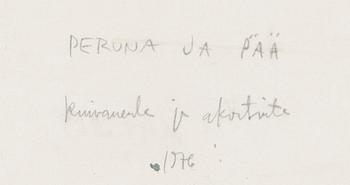 PERUNA JA PÄÄ
kuivaneula ja akvatinta
1976